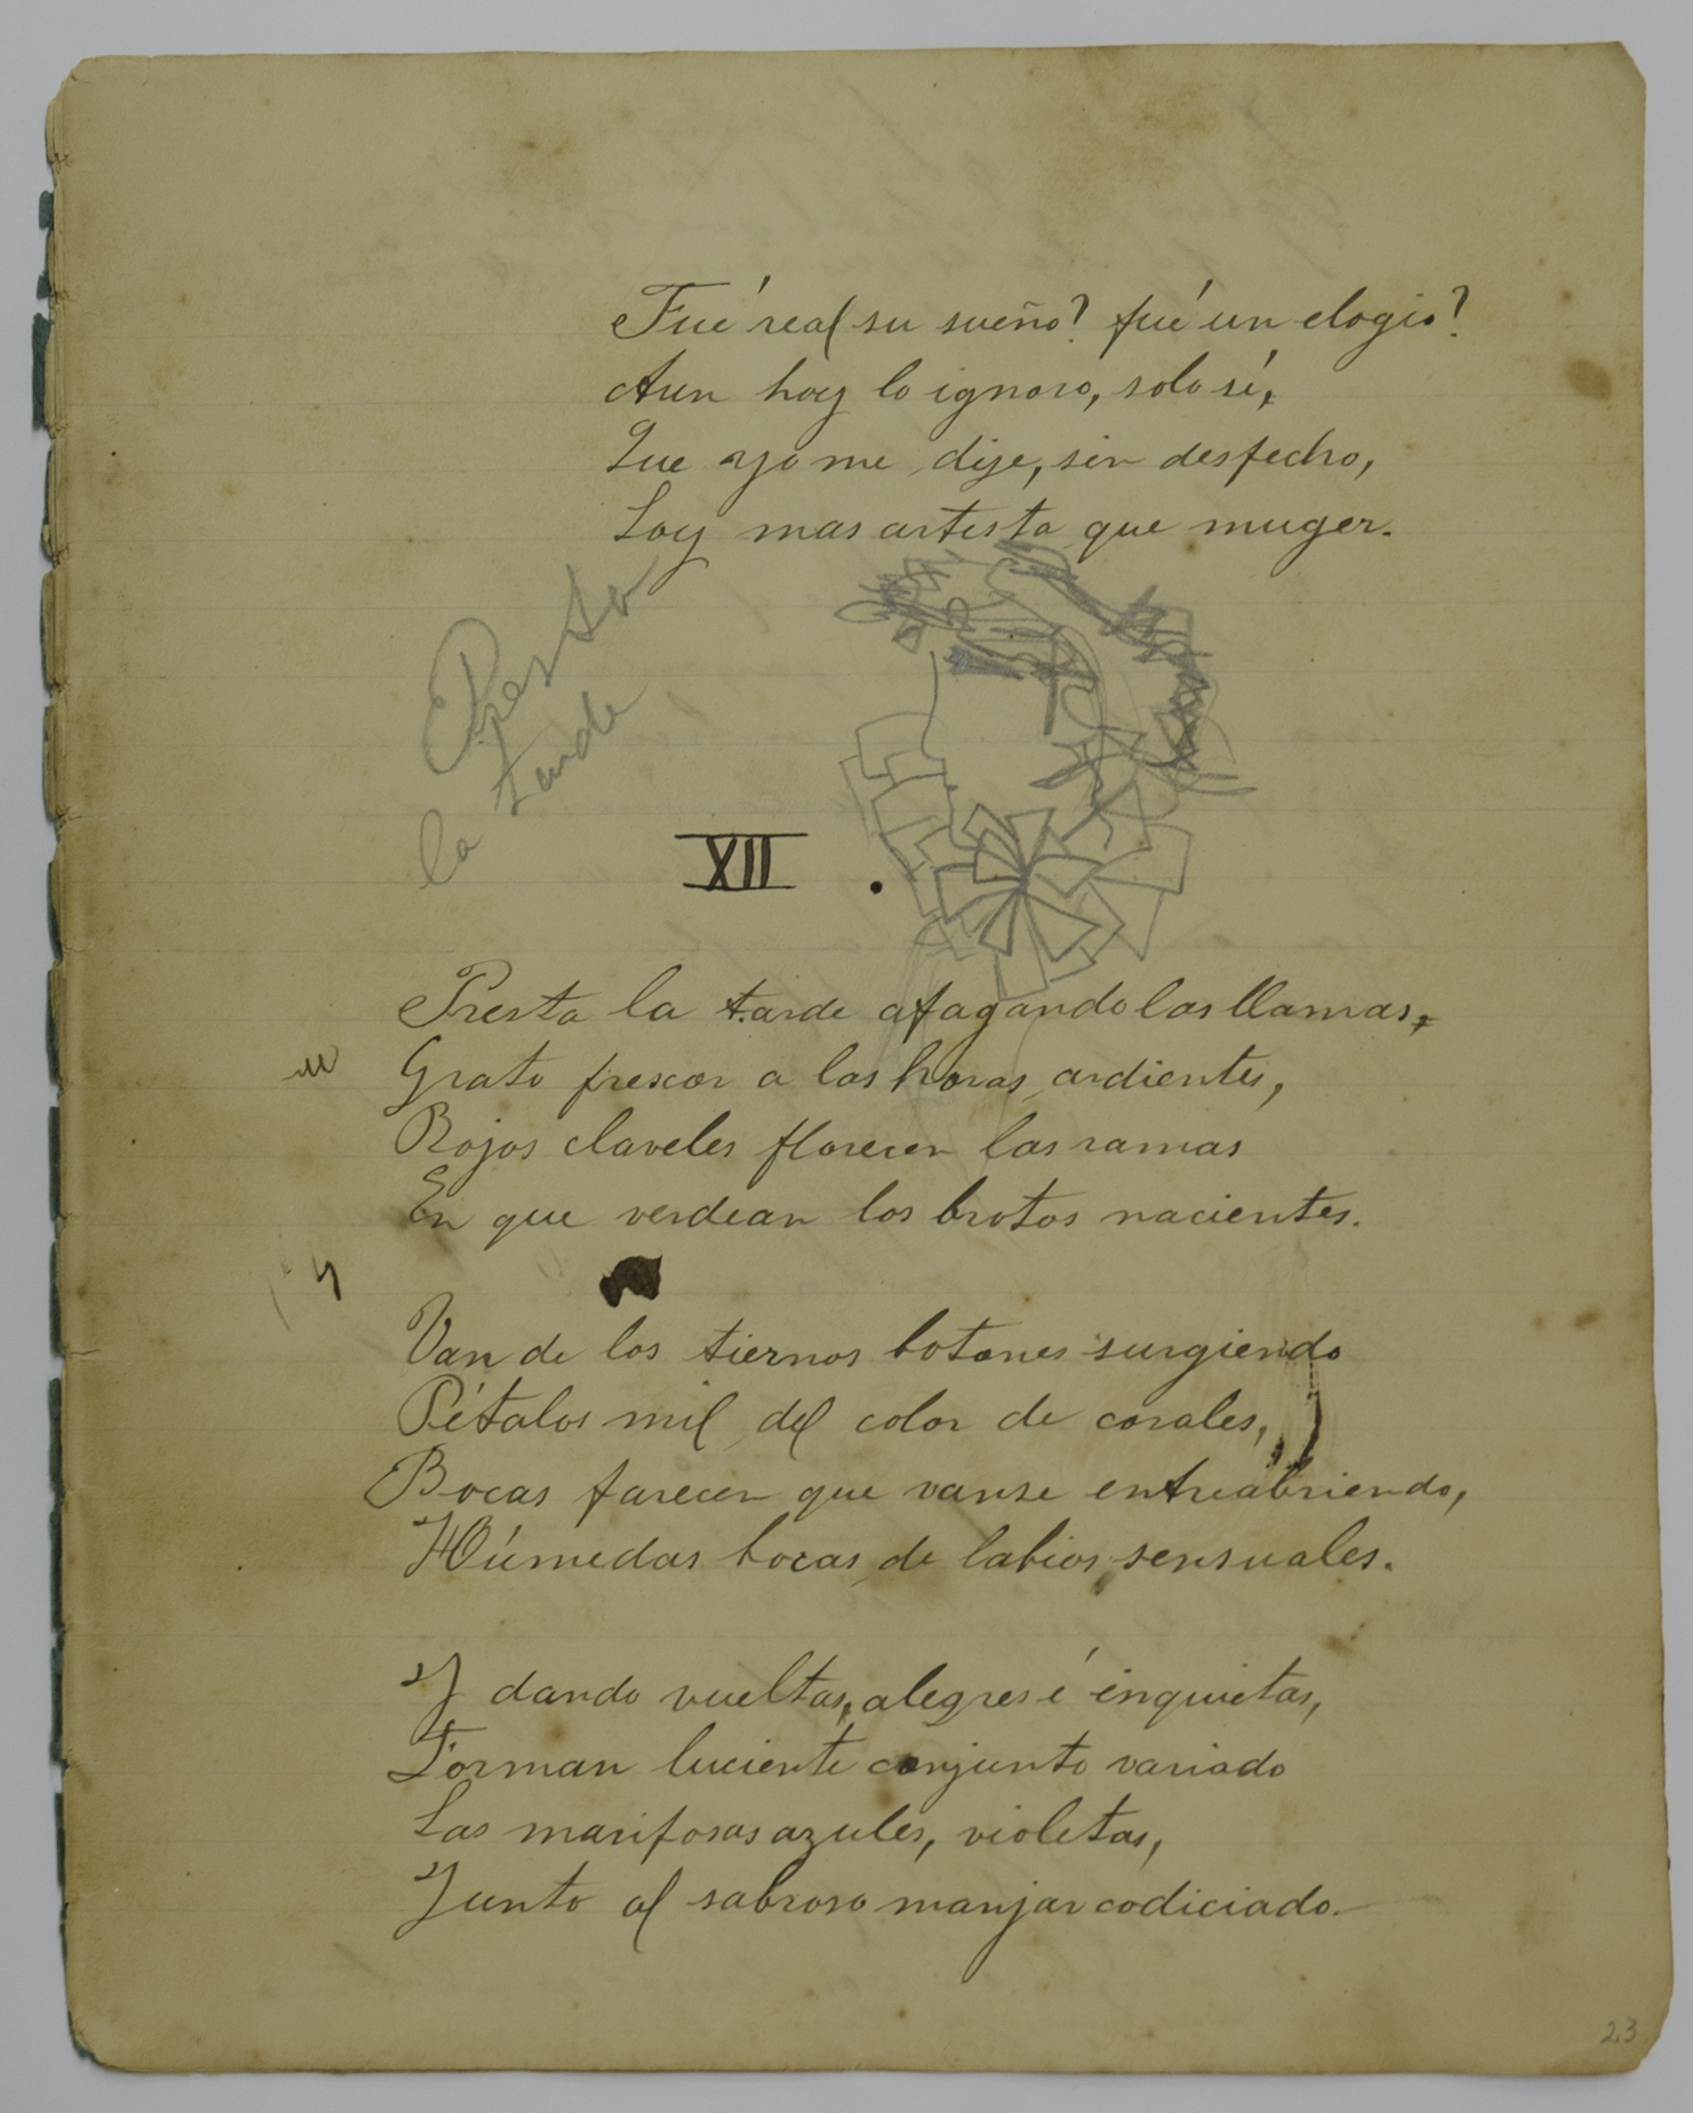 Fué real su sueño? fué un elogio?
Aun hoy lo ignoro, solo sé,
Que yo me dije, sin despecho,
Soy mas artista que muger.
Presta
la tarde
XII.
Presta la tarde apagando las llamas,
Grato frescor a las horas ardientes,
Rojos claveles florecen las ramas
En que verdean los brotos nacientes.
Van de los tiernos botones surgiendo
Pétalos mil del color de corales,
Bocas parecen que vanse entreabriendo,
Húmedas bocas de labios sensuales.
Y dando vueltas, alegres é inquietas,
Forman luciente conjunto variado
Las mariposas azules, violetas,
Junto al sabroso manjar codiciado.
23